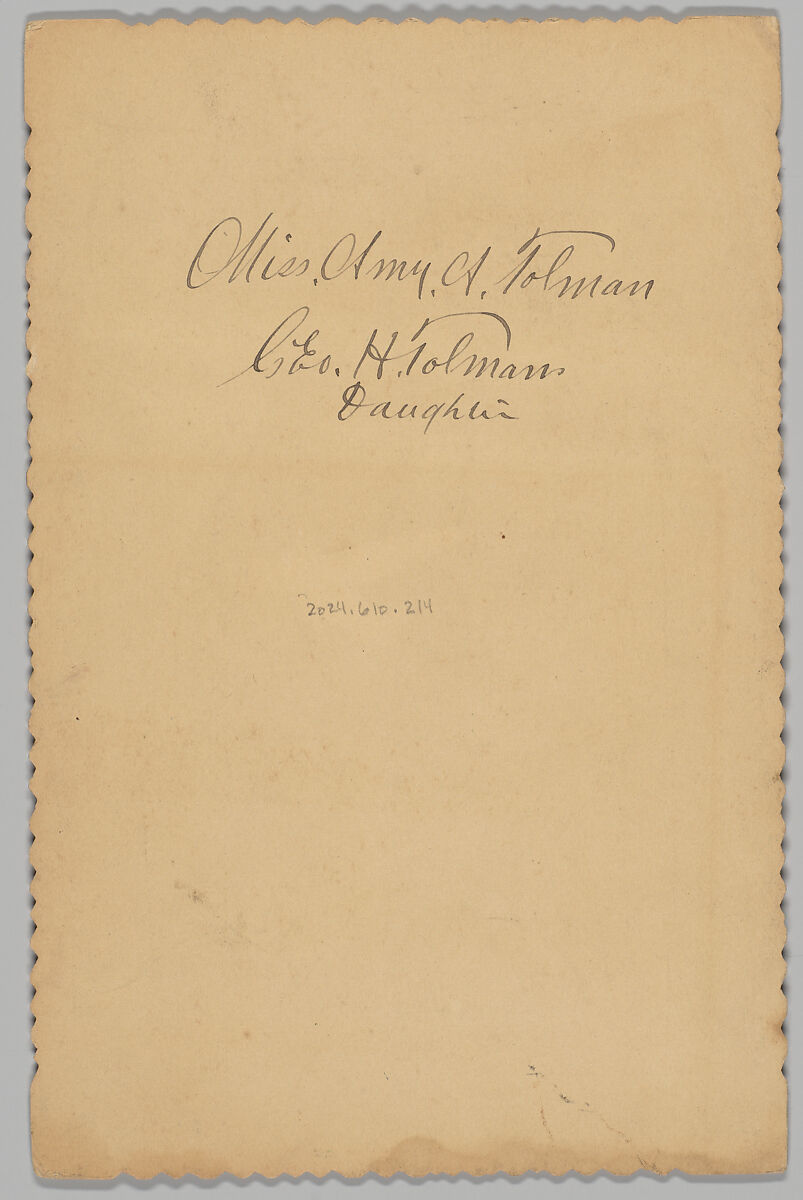 Miss. Amy. A. Tolman
Geo. H. Tolmans
Daughter
2024.610.214